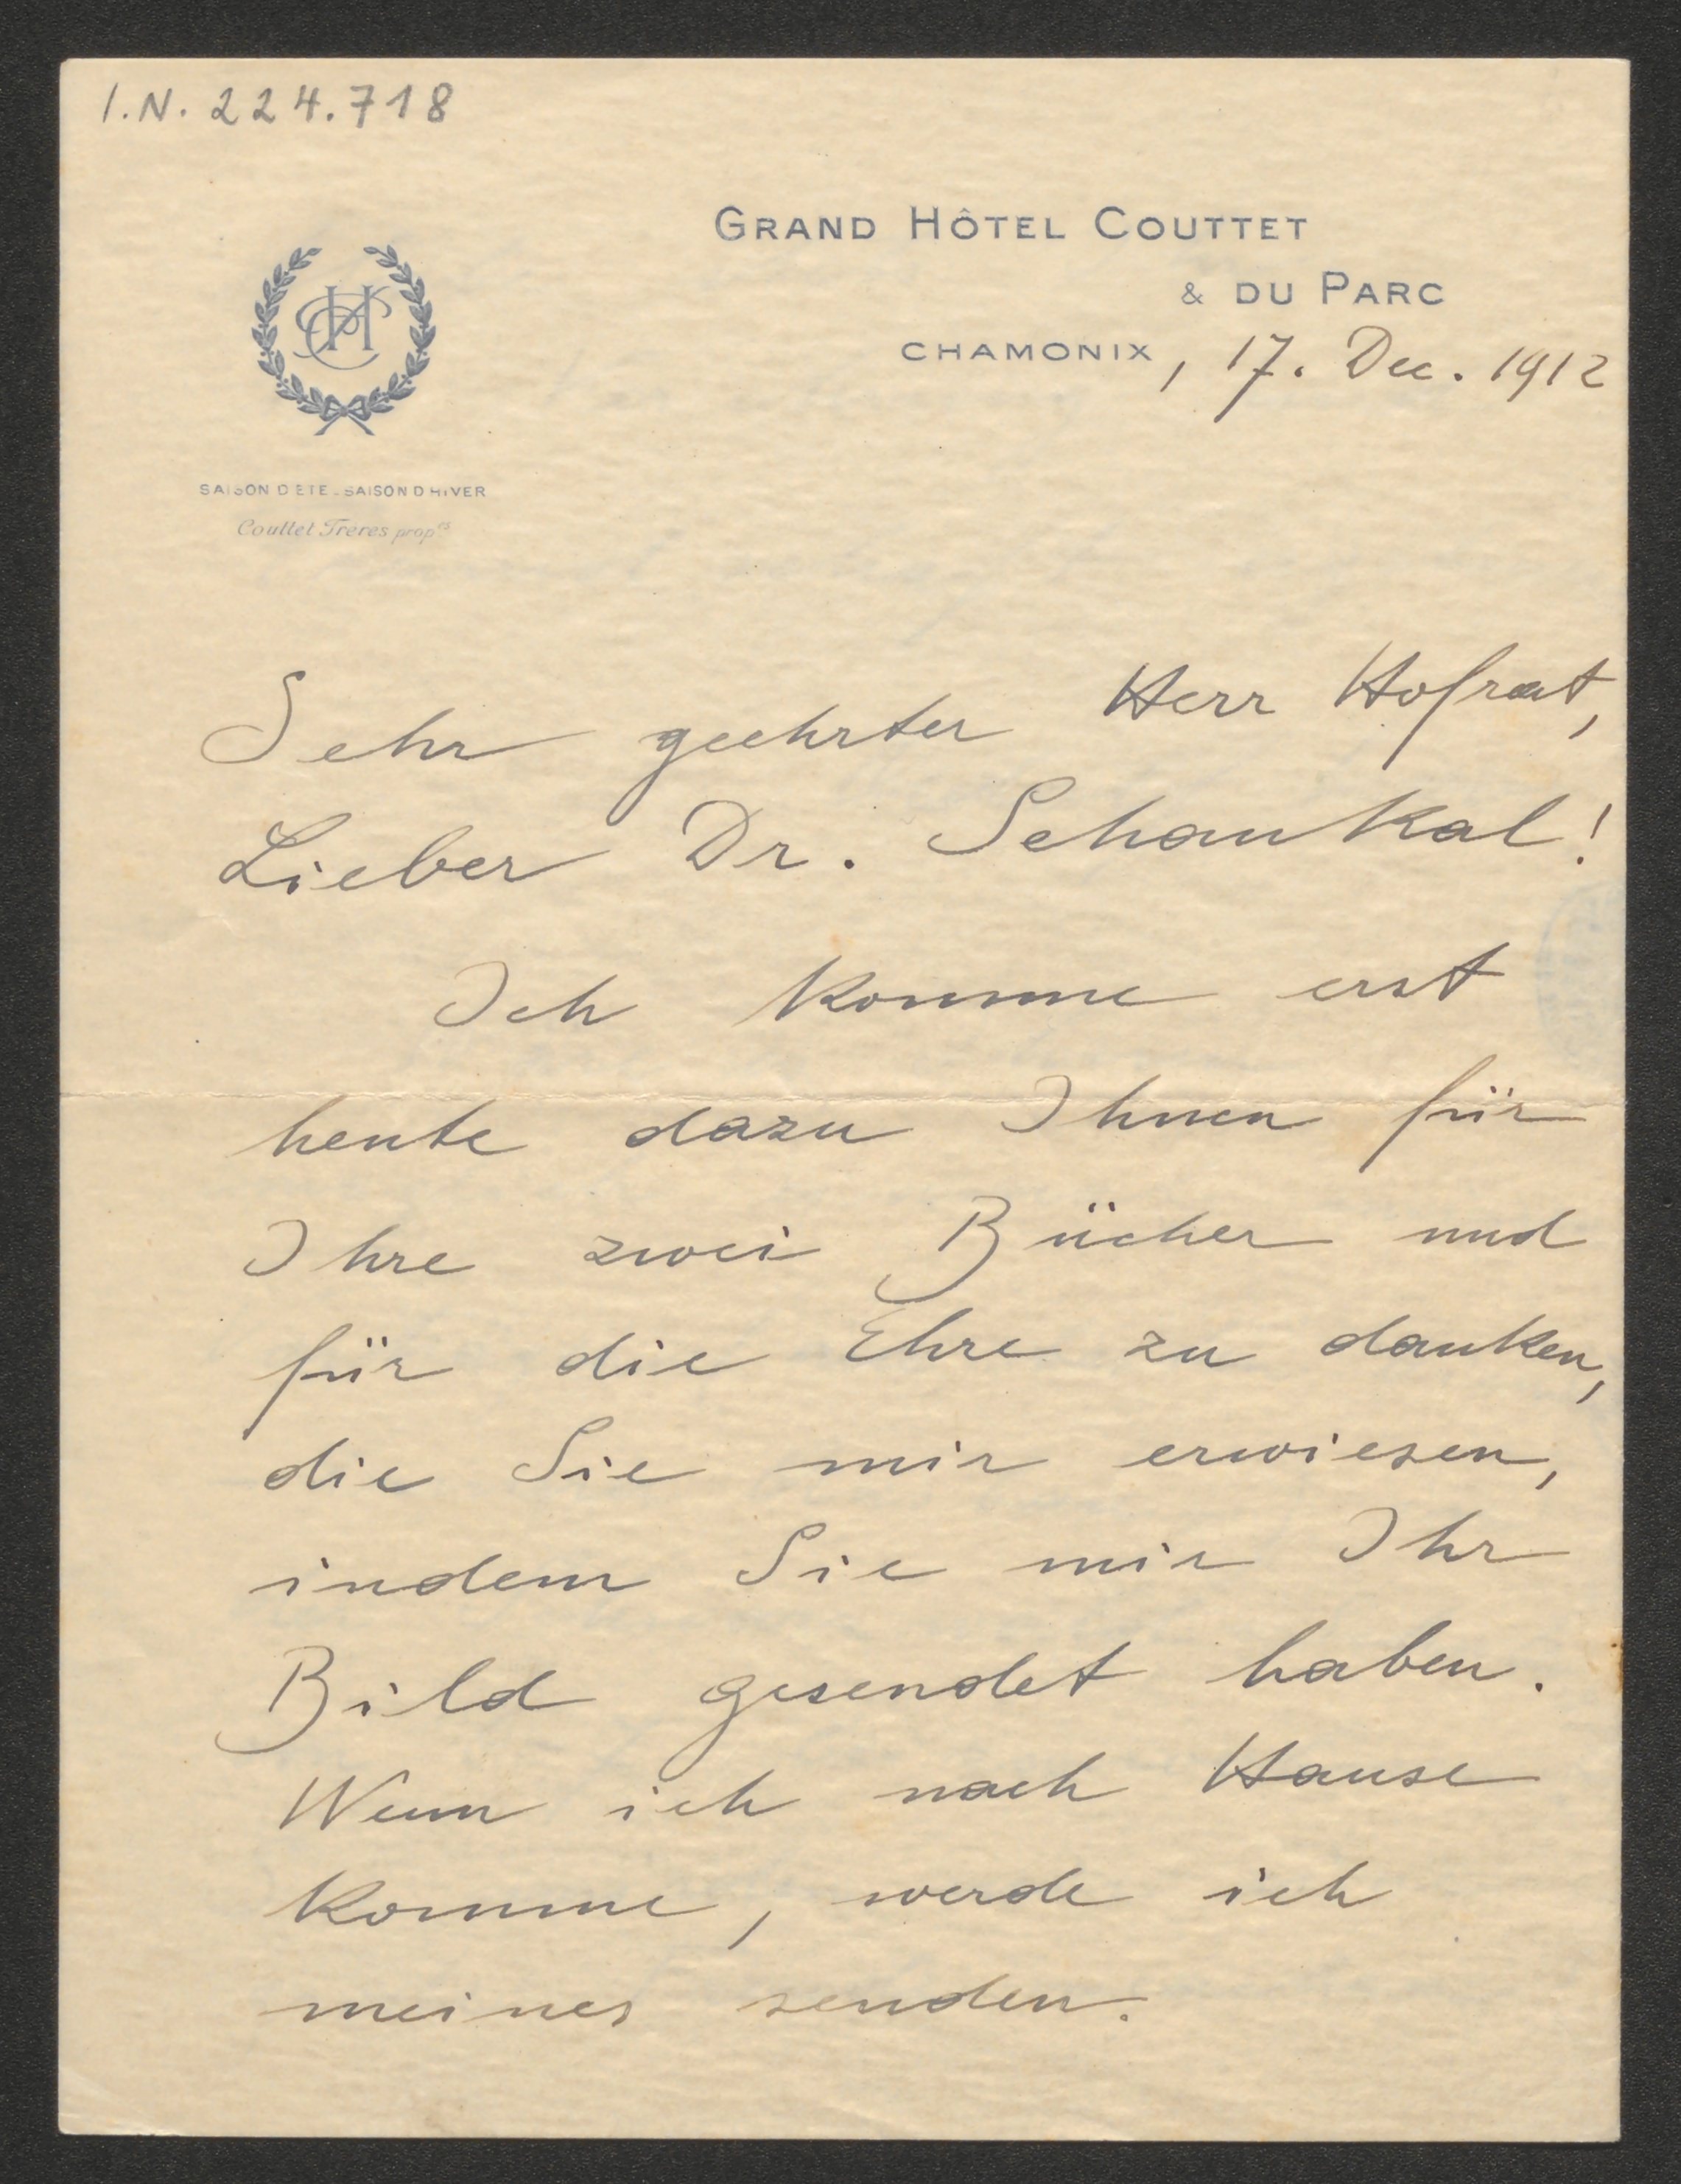 I.N. 224.718
GRAND HÔTEL COUTTET
& DU PARC
CHAMONIX, 17. Dec. 1912
SAISON D'ÉTÉ - SAISON D'HIVER
Couttet Frères prop.es
Sehr geehrter Herr Hofrat,
Lieber Dr. Schaukal!
Ich komme erst
heute dazu Ihnen für
Ihre zwei Bücher und
für die Ehre zu danken,
die Sie mir erwiesen,
indem Sie mir Ihr
Bild gesendet haben.
Wenn ich nach Hause
komme, werde ich
meines senden.